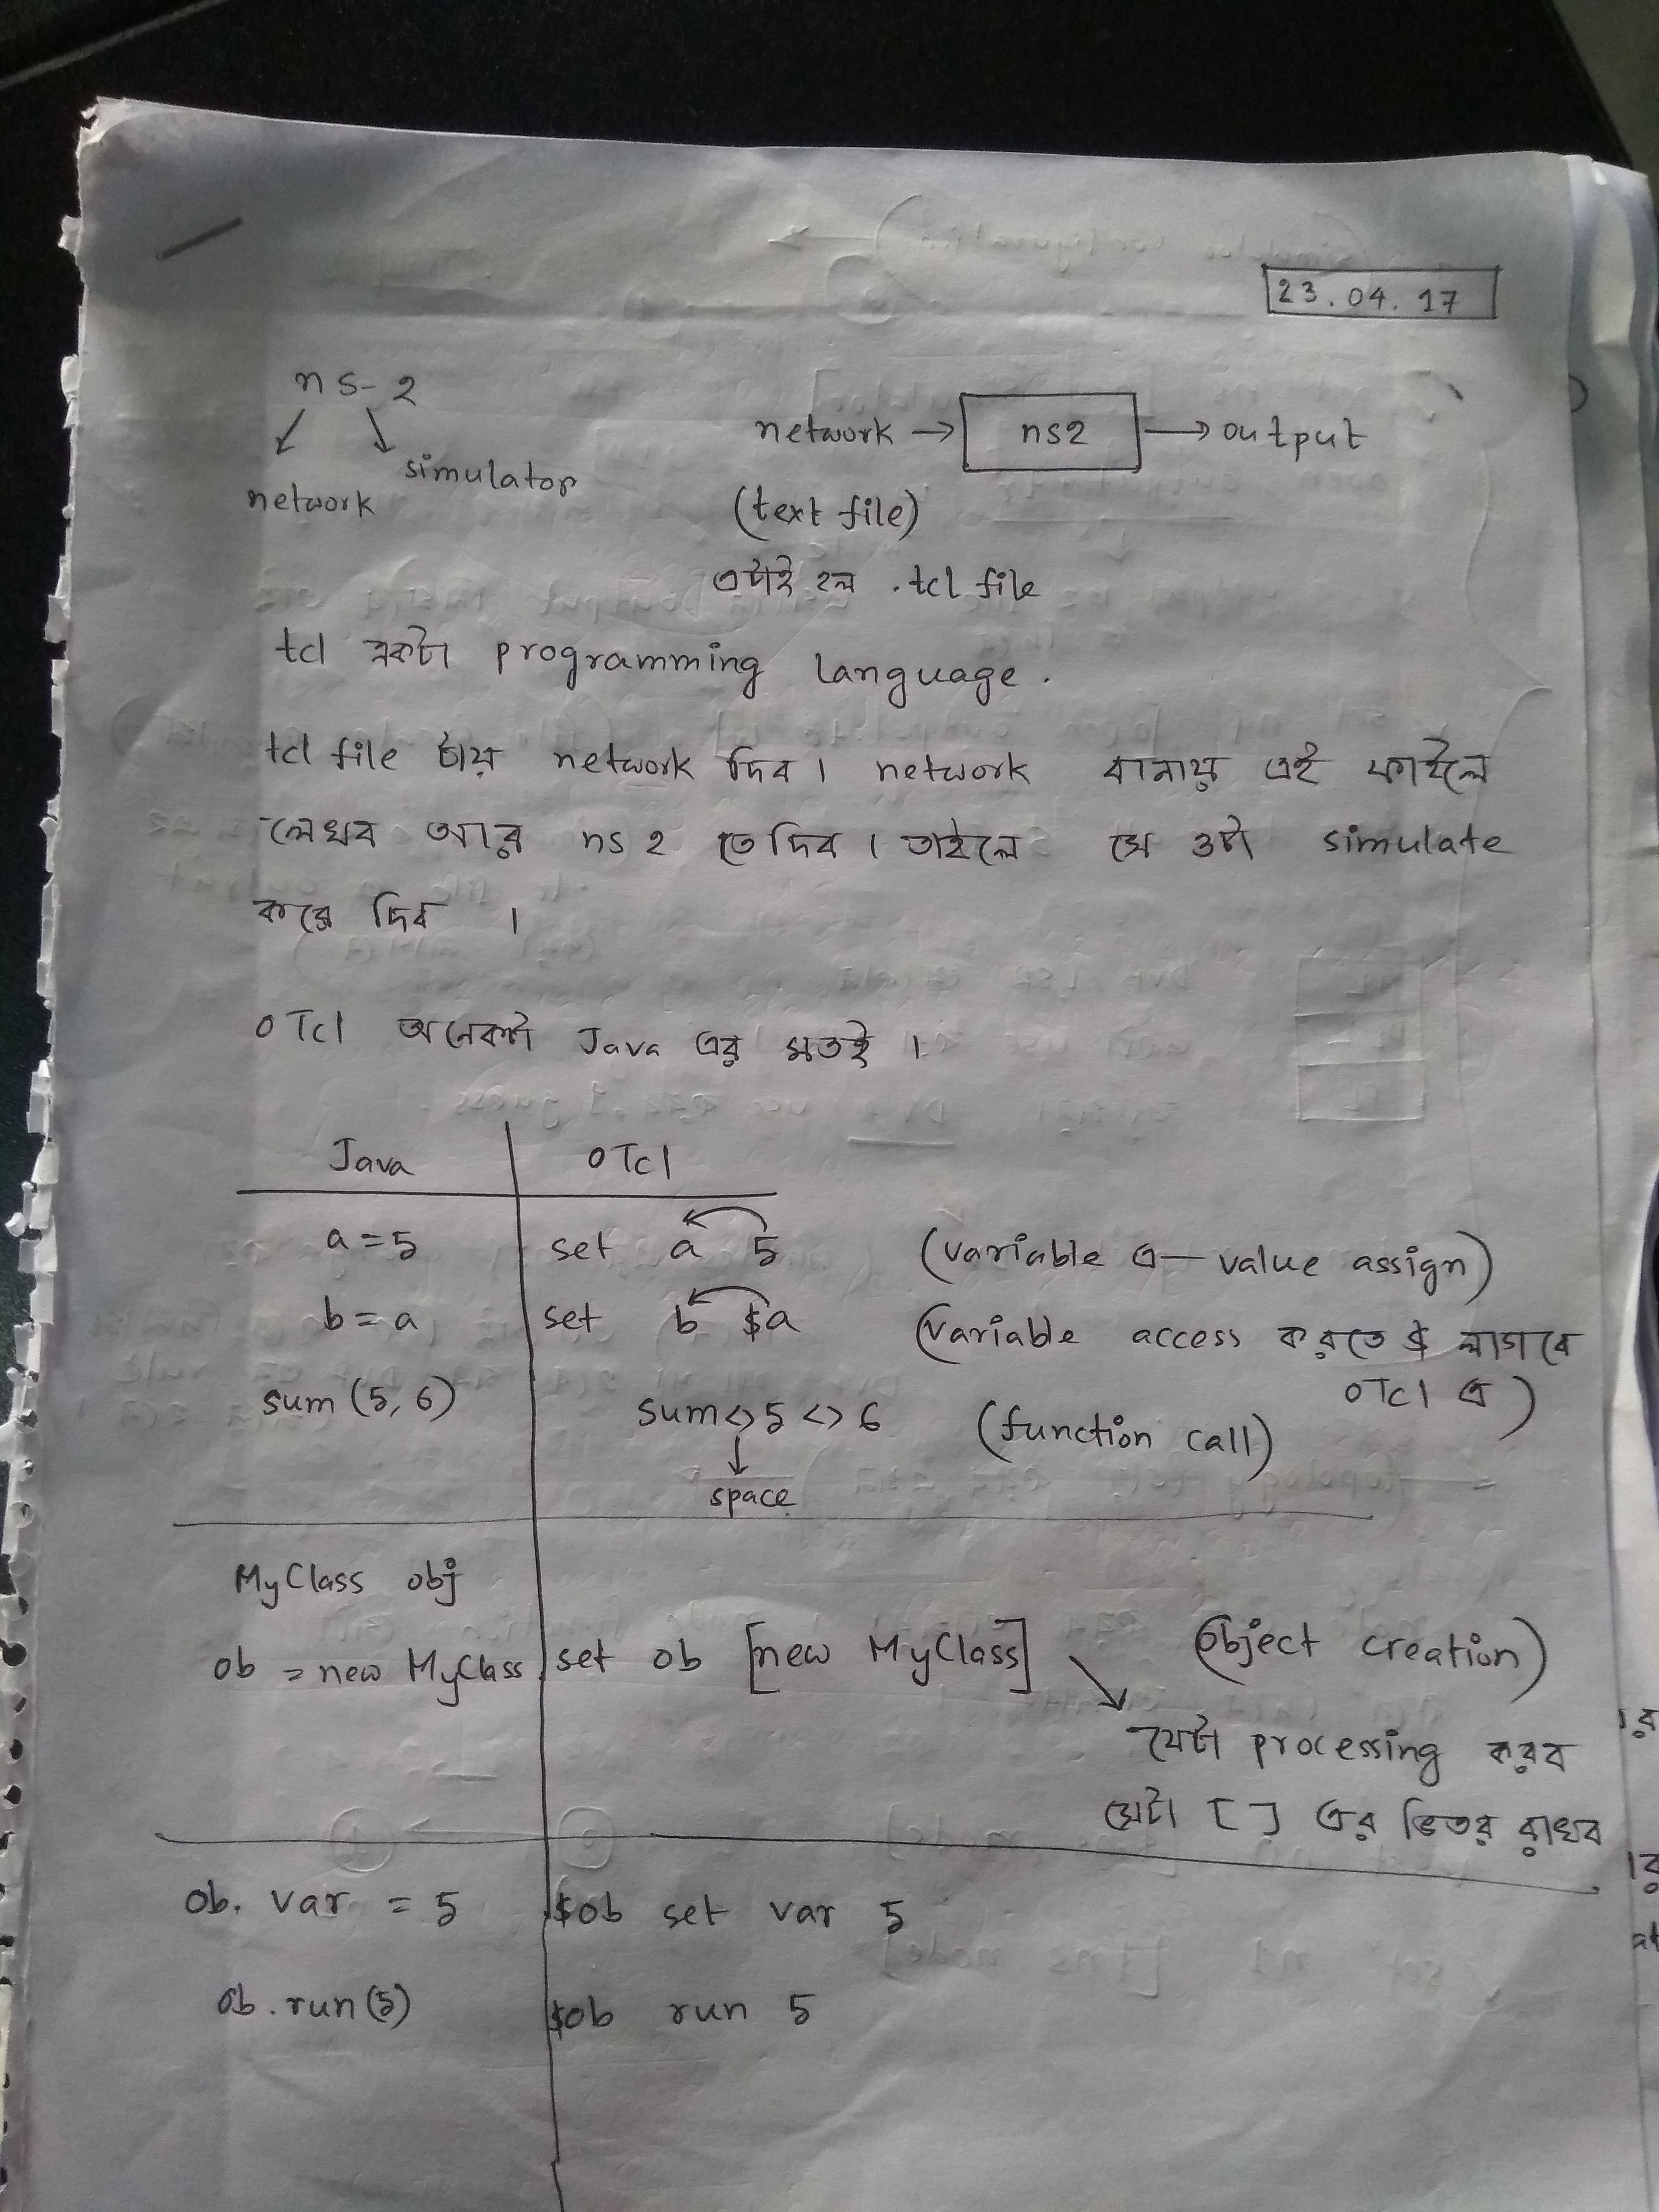 23.04.17
ns-2
network simulator
network → ns2 → output
(text file)
এটাই হল .tcl file
tcl একটা programming language.
tcl file টায় network দিব। network বানায় এই ফাইলে
লেখব আর ns2 তে দিব। তাইলে সে ওটা simulate
করে দিব ।
OTcl অনেকটা Java এর মতই ।
Java OTcl
a=5 set a 5 (variable এ value assign)
b=a set b $a (variable access করতে $ লাগবে
OTcl এ)
sum(5,6) sum<>5<>6 (function call)
space
MyClass obj
ob = new MyClass set ob [new MyClass] (object creation)
যেটা processing করব
সেটা [ ] এর ভিতর রাখব
ob. var = 5 $ob set var 5
ob.run(5) $ob run 5